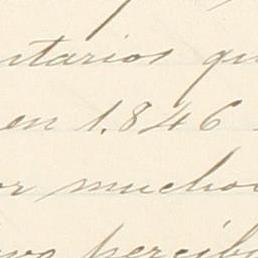 itarios qu
en 1.846
or muchos
percib